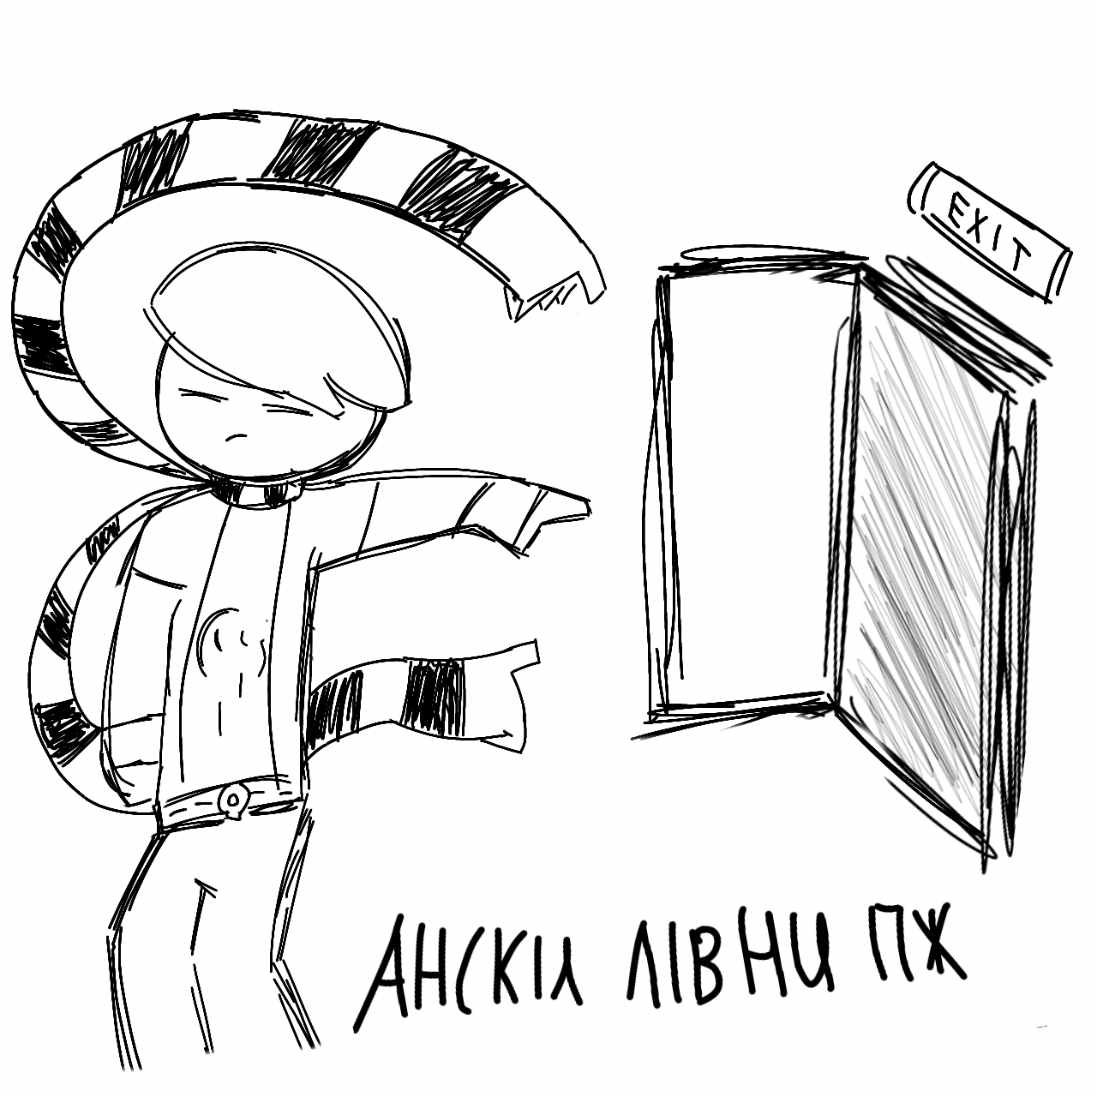 EXIT
АНСКІЛ ЛІВНИ ПЖ